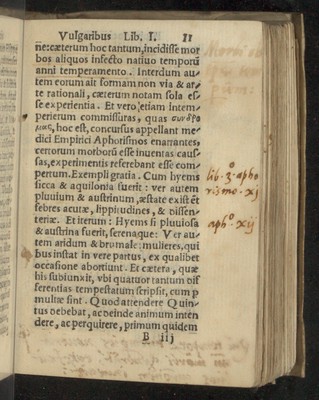 Vulgaribus Lib. I. 11
ne: cæterum hoc tantum, incidisse mor
bos aliquos infesto natiuo temporū
anni temperamento. Interdum au-
tem eorum ait formam non via & ar-
te rationali, cæterum notam sola es-
se experientia. Et vero, etiam intem-
perierum commissuras, quas συνδρο
μας, hoc est, concursus appellant me-
dici Empirici Aphorismos enarrantes,
certorum morborū esse inuentas cau-
sas, experimentis referebant esse com-
pertum. Exempli gratia. Cum hyems
sicca & aquilonia fuerit: ver autem
pluuium & austrinum, æstate existēt
febres acutæ, lippitudines, & dissen-
teriæ. Et iterum: Hyems si pluuiosa
& austrina fuerit, serenaque: Ver au-
tem aridum & brumale: mulieres, qui
bus instat in vere partus, ex qualibet
occasione abortiunt. Et cætera, quæ
his subiunxit, vbi quatuor tantum dif
ferentias tempestatum scripsit, cum p
multæ sint. Quod attendere Quin-
tus debebat, ac deinde animum inten
dere, ac perquirere, primum quidem
B iij
lib. 3. apho
aph° xij